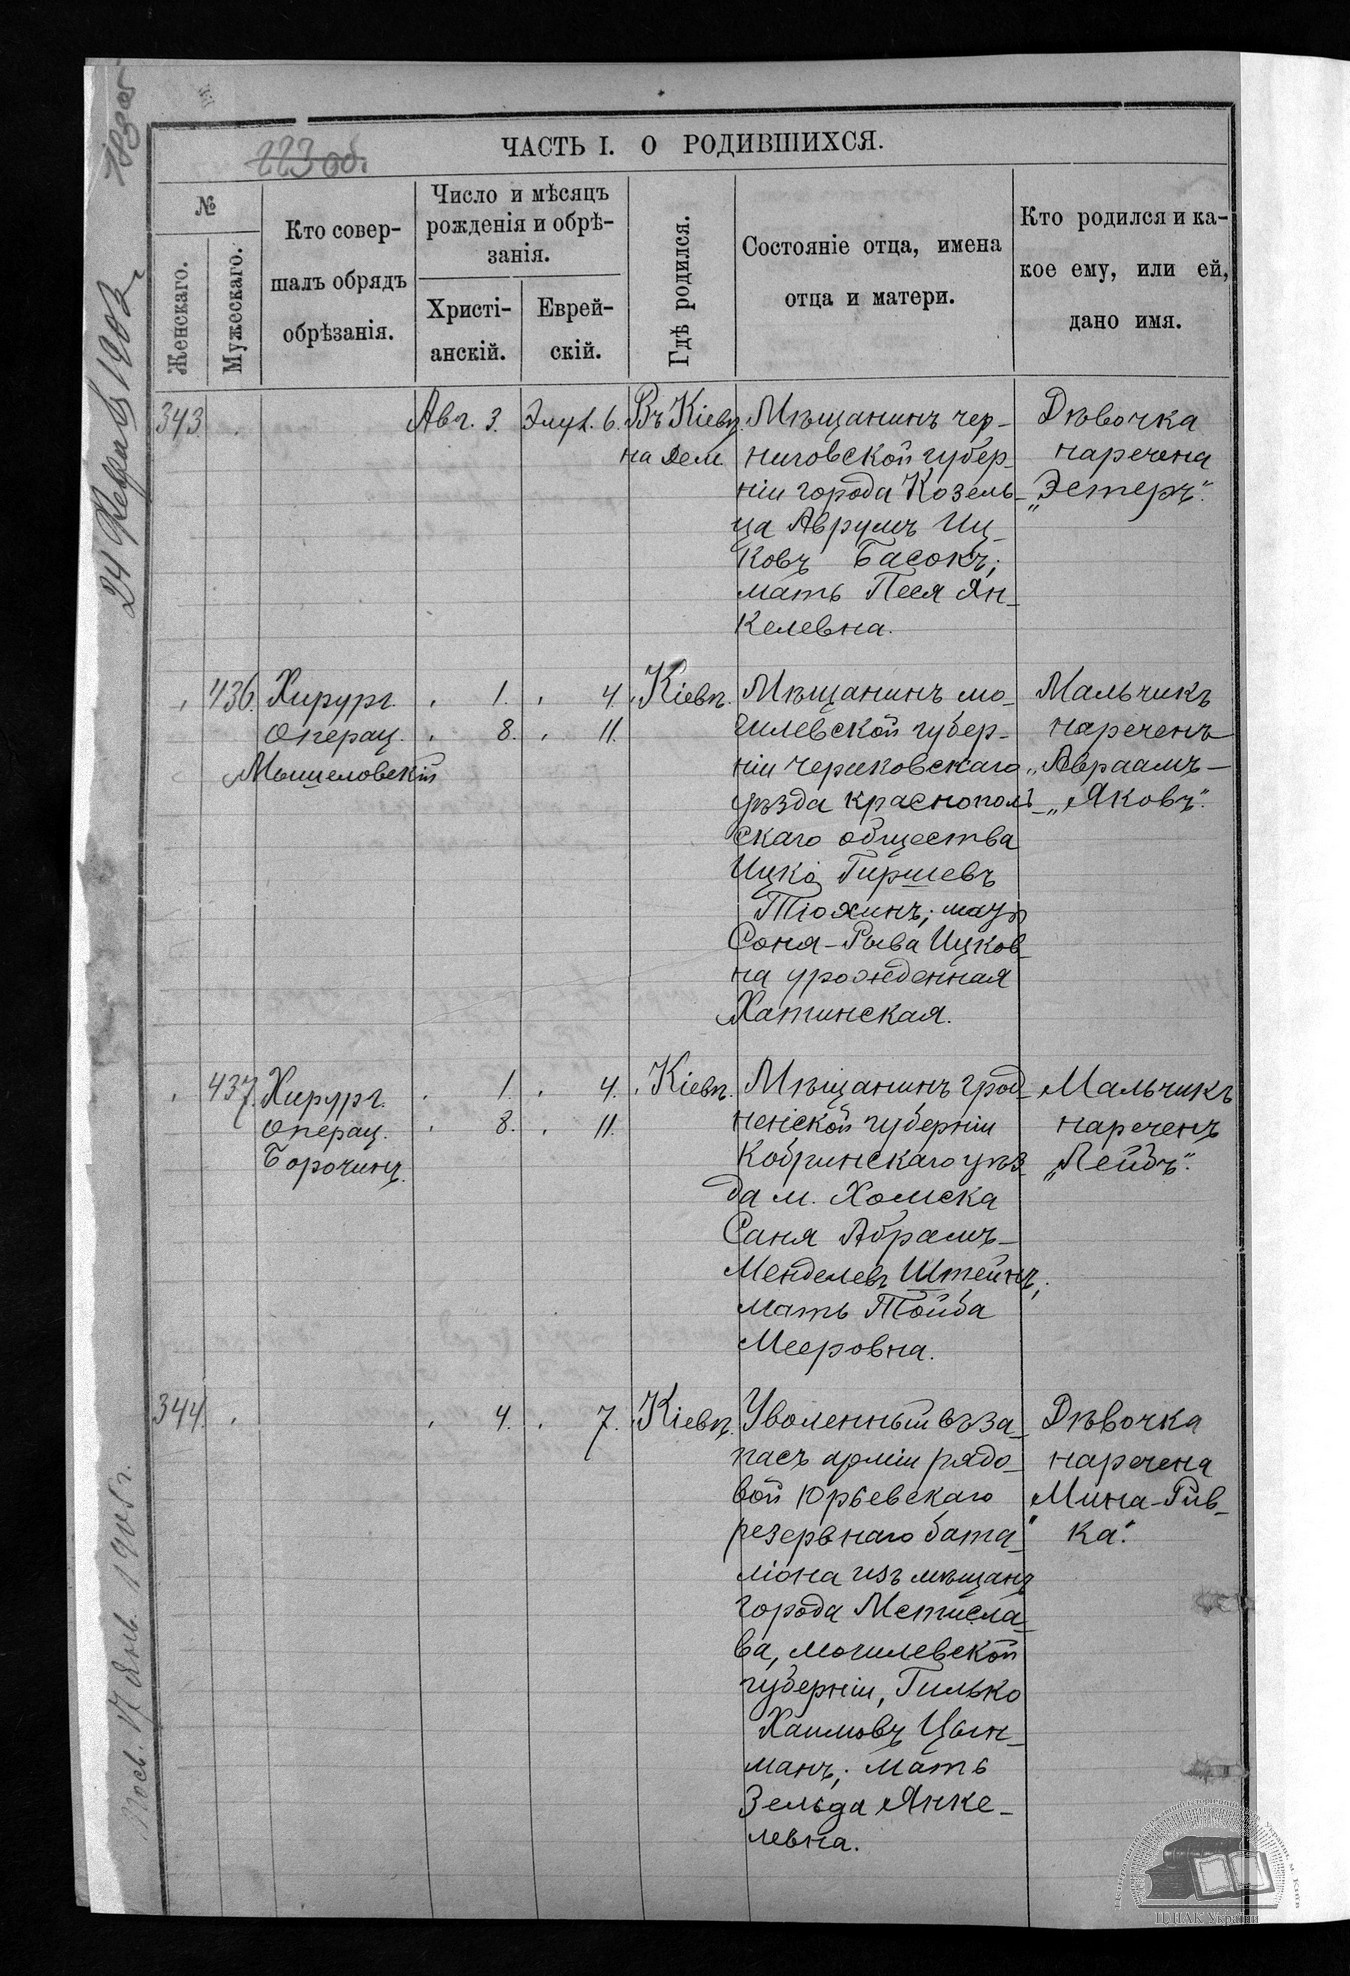 223 об.
ЧАСТЬ I. О РОДИВШИХСЯ.
№
Женскаго.
Мужескаго.
Кто совер-
шалъ обрядъ
обрѣзанія.
Число и мѣсяцъ
рожденія и обрѣ-
занія.
Христі-
анскій.
Еврей-
скій.
Гдѣ родился.
Состояніе отца, имена
отца и матери.
Кто родился и ка-
кое ему, или ей,
дано имя.
343.
Авг. 3.
Элул. 6.
Въ Кіевѣ
на Дем.
Мѣщанинъ чер-
ниговской губер-
ніи города Козель-
ца Аврумъ Иц-
ковъ Басокъ;
мать Песя Ян-
келевна.
Дѣвочка
наречена
„Эстеръ“.
436.
Хирург.
Операц.
Мышеловскій
1.
8.
4.
11.
Кіевѣ.
Мѣщанинъ мо-
гилевской губер-
ніи чериковскаго
уѣзда краснополь-
скаго общества
Ицко Гиршевъ
Тюхинъ; мать
Соня-Рыва Ицков-
на урожденная
Хатинская.
Мальчикъ
нареченъ
„Авраамъ-
„Яковъ“.
437.
Хирург.
Операц.
Борочинъ.
1.
8.
4.
11.
Кіевѣ.
Мѣщанинъ грод-
ненской губерніи
Кобринскаго уѣз-
да м. Хомска
Саня Абрамъ-
Менделевъ Штейнъ;
мать Тойба
Мееровна.
Мальчикъ
нареченъ
„Лейбъ“.
344.
4.
7.
Кіевѣ.
Уволенный въ за-
пасъ арміи рядо-
вой Юрьевскаго
резервнаго бата-
ліона изъ мѣщанъ
города Мстисла-
ва, могилевской
губерніи, Гилько
Хаимовъ Цын-
манъ; мать
Зельда Янке-
левна.
Дѣвочка
наречена
„Мина-Рив-
ка“.
24 Февраля 1902
17 Янв. 1905 г.
ЦДІАК України